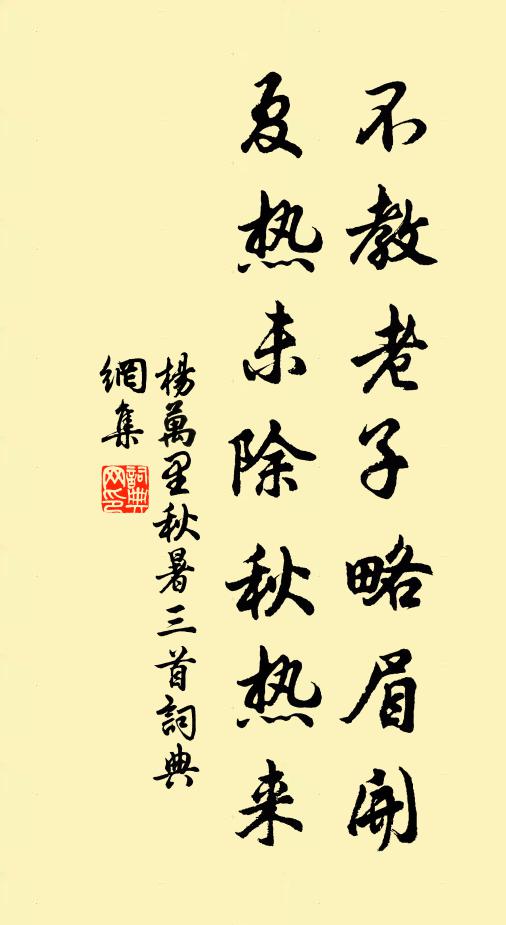 不教老子略眉開
夏热未除秋热来
楊萬里秋暑三首詞典
網集
詞典
网印